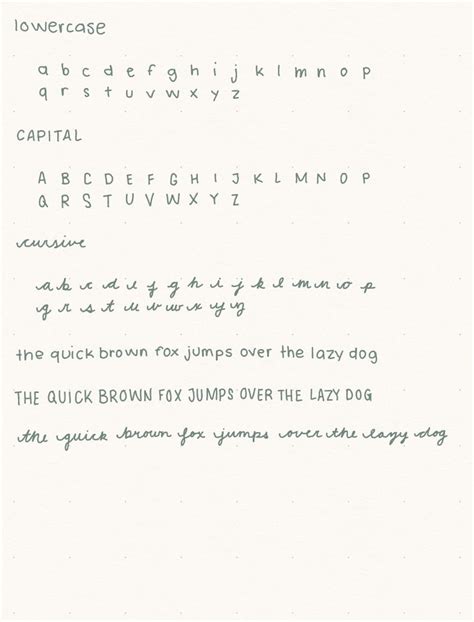 lowercase
a b c d e f g h i j k l m n o p
q r s t u v w x y z
CAPITAL
A B C D E F G H I J K L M N O P
Q R S T U V W X Y Z
cursive
a b c d e f g h i j k l m n o p
q r s t u v w x y z
the quick brown fox jumps over the lazy dog
THE QUICK BROWN FOX JUMPS OVER THE LAZY DOG
the quick brown fox jumps over the lazy dog